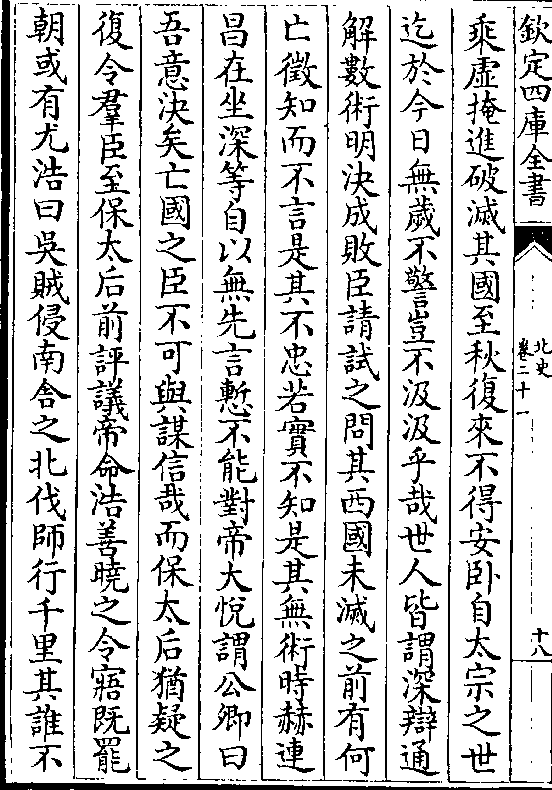 欽定四庫全書
北史
卷二十一
十八
乘虛掩進破滅其國至秋復來不得安卧自太宗之世
迄於今日無歲不警豈不汲汲乎哉世人皆謂深辯通
解數術明決成敗臣請試之問其西國未滅之前有何
亡徵知而不言是其不忠若實不知是其無術時赫連
昌在坐深等自以無先言慙不能對帝大悅謂公卿曰
吾意決矣亡國之臣不可與謀信哉而保太后猶疑之
復令羣臣至保太后前評議帝命浩善曉之令寤既罷
朝或有尤浩曰吳賊侵南舍之北伐師行千里其誰不